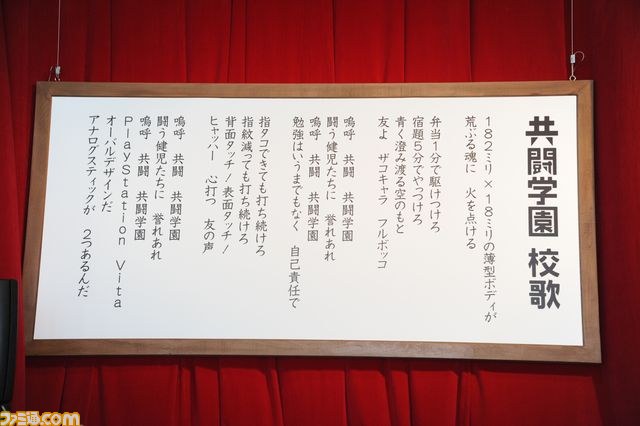 共闘学園 校歌
182ミリ×18ミリの薄型ボディが
荒ぶる魂に 火を点ける
弁当1分で駆けつけろ
宿題5分でやっつけろ
青く澄み渡る空のもと
友よ ザコキャラ フルボッコ
嗚呼 共闘 共闘学園
闘う健児たちに 誉れあれ
嗚呼 共闘 共闘学園
勉強はいうまでもなく 自己責任で
指タコできても打ち続けろ
指紋減っても打ち続けろ
背面タッチ!表面タッチ!
ヒャッハー 心打つ 友の声
嗚呼 共闘 共闘学園
闘う健児たちに 誉れあれ
嗚呼 共闘 共闘学園
PlayStation Vita
オーバルデザインだ
アナログスティックが 2つあるんだ
ファミ通.com